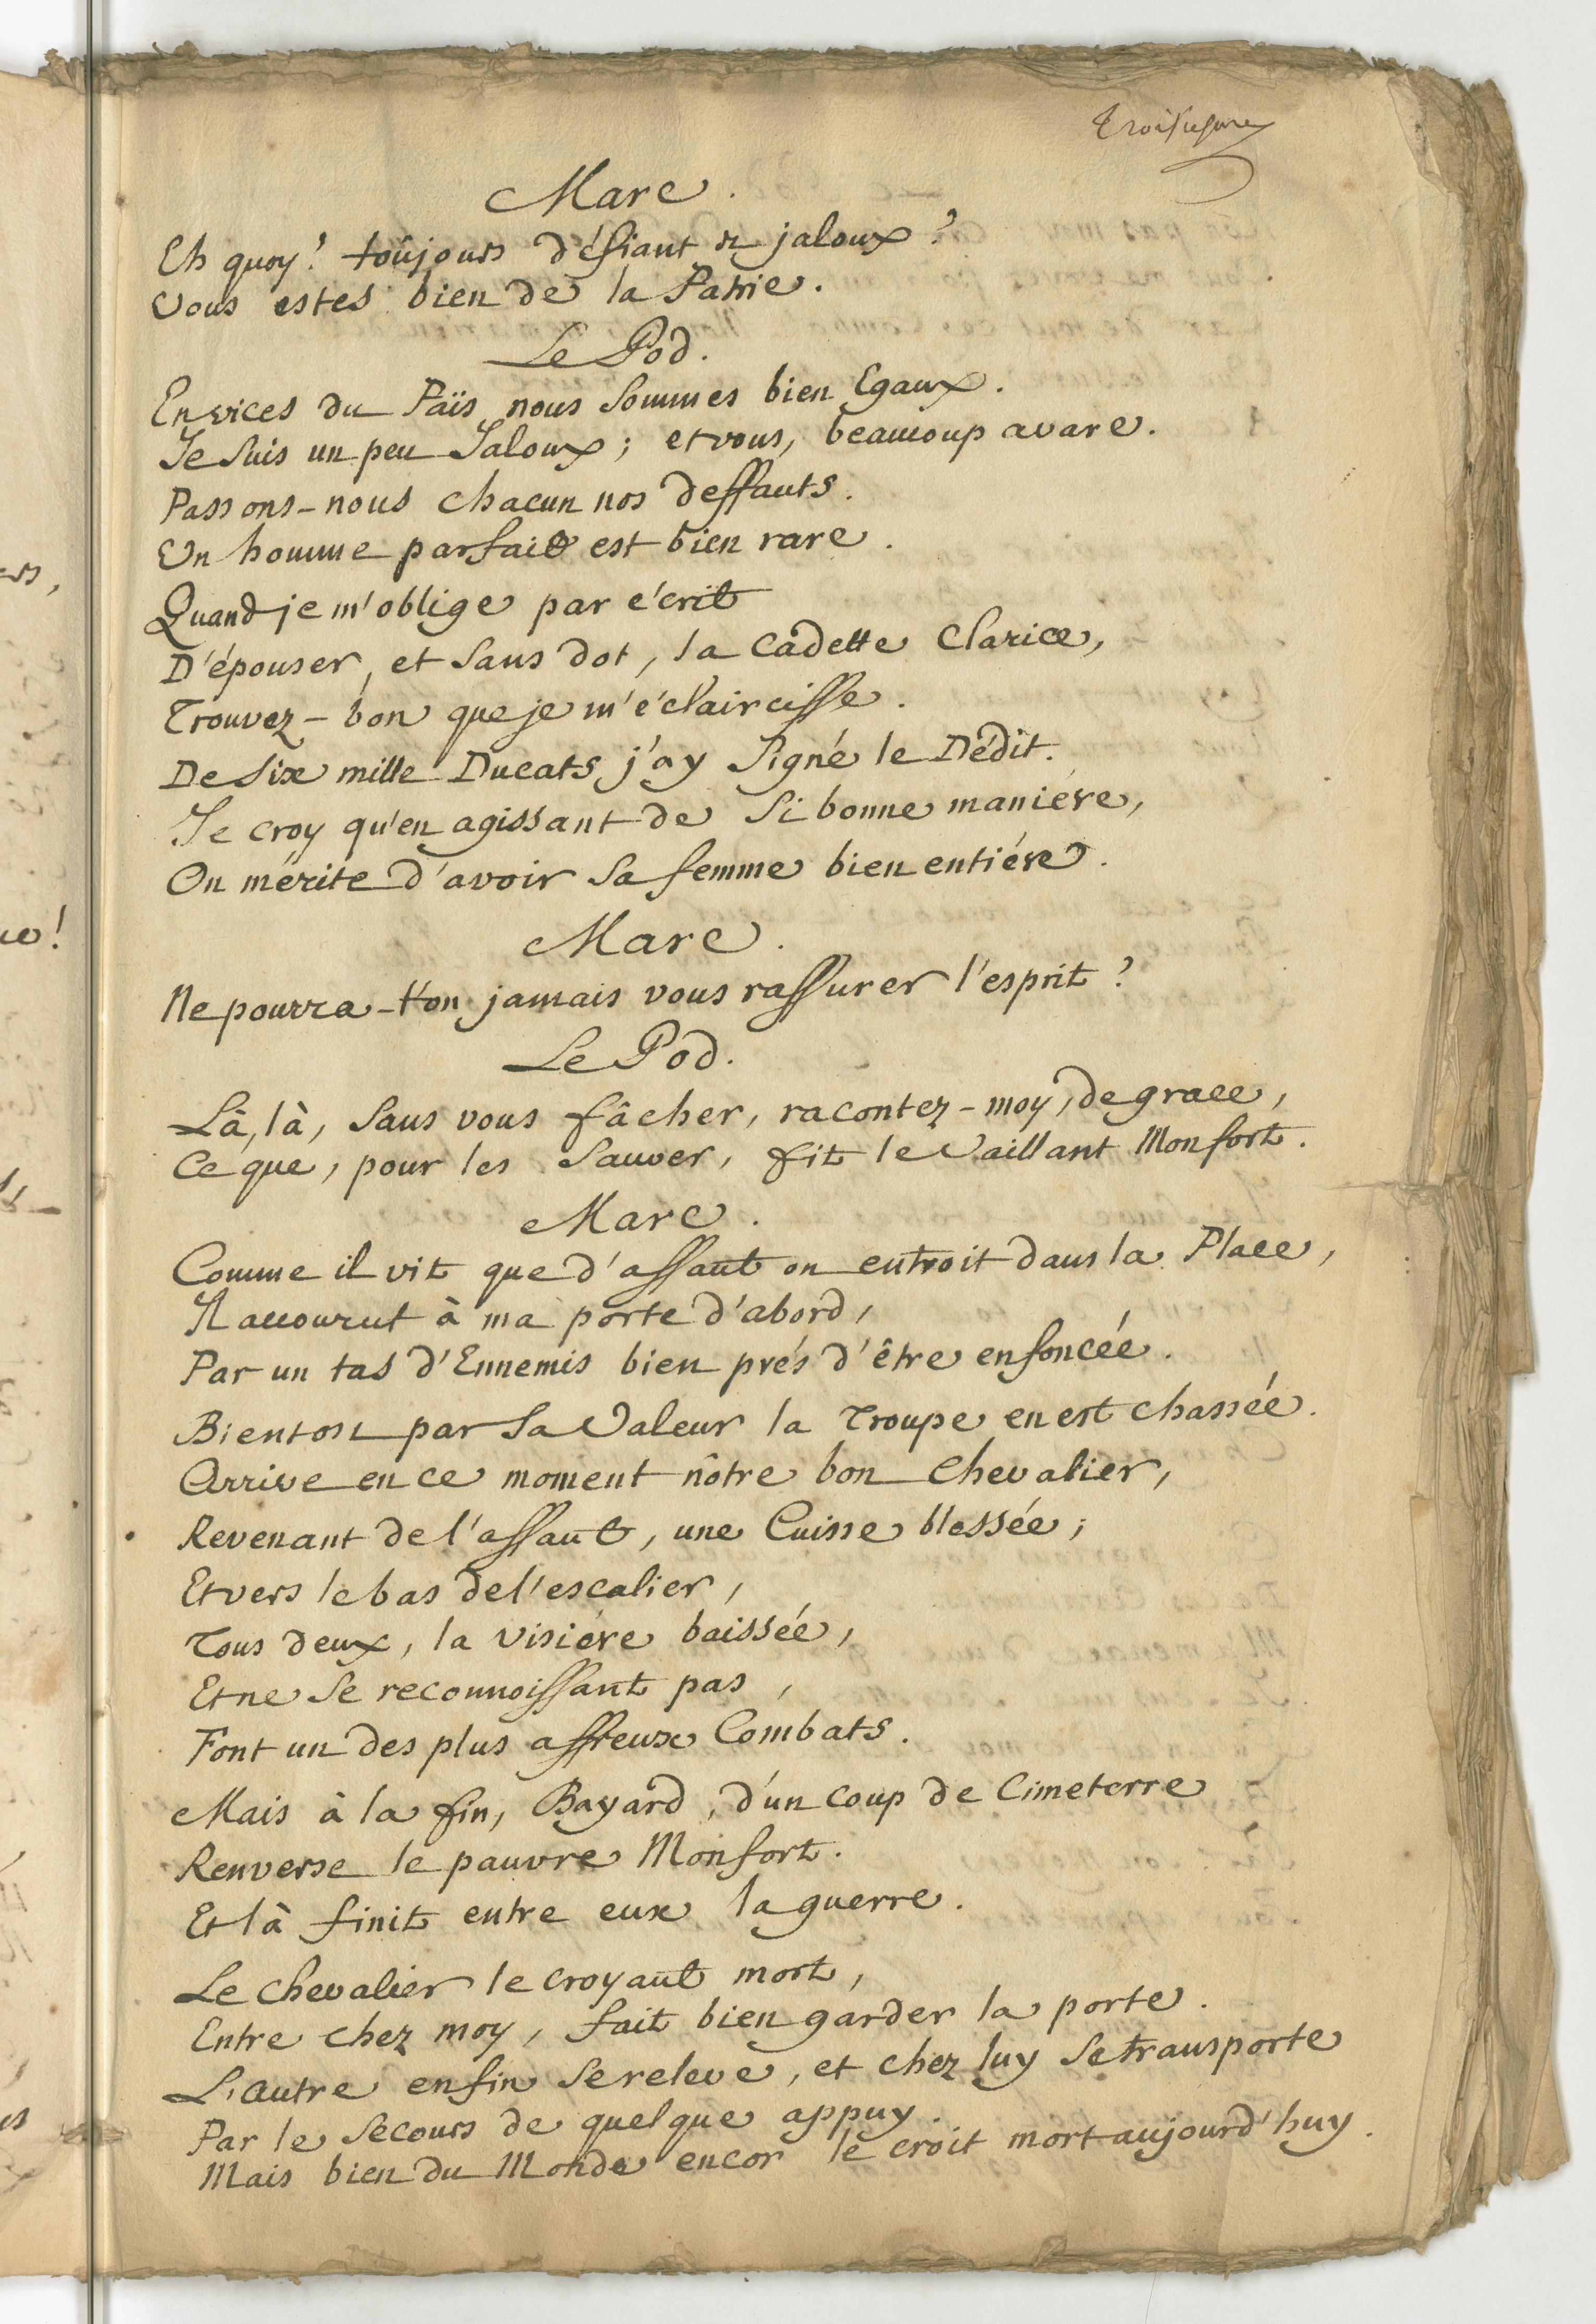 Troisiesme
Marc.
Eh quoy! toûjours défiant et jaloux?
Vous estes bien de la Patrie.
Le Pod.
En vices du Païs nous sommes bien Egaux.
Je suis un peu Jaloux; et vous, beaucoup avare.
Passons-nous chacun nos deffauts.
Un homme parfait est bien rare.
Quand je m'oblige par écrit
D'épouser, et sans dot, la Cadette Clarice,
Trouvez-bon que je m'éclaircisse.
De six mille Ducats j'ay signé le Dédit.
Je croy qu'en agissant de si bonne maniére,
On mérite d'avoir sa femme bien entiére.
Marc.
Ne pourra-t'on jamais vous rassurer l'esprit?
Le Pod.
Là, là, sans vous fâcher, racontez-moy, de grace,
Ce que, pour les sauver, fit le Vaillant Monfort.
Marc.
Comme il vit que d'assaut on entroit dans la Place,
Il accourut à ma porte d'abord,
Par un tas d'Ennemis bien prés d'être enfoncée.
Bientost par sa Valeur la Troupe en est chassée.
Arrive en ce moment nôtre bon Chevalier,
Revenant de l'assaut, une Cuisse blessée;
Et vers le bas de l'escalier,
Tous deux, la visiére baissée,
Et ne se reconnoissant pas,
Font un des plus affreux Combats.
Mais à la fin, Bayard, d'un coup de Cimeterre
Renverse le pauvre Monfort.
Et là finit entre eux la guerre.
Le Chevalier le croyant mort,
Entre chez moy, fait bien garder la porte.
L'autre enfin se releve, et chez luy se transporte
Par le secours de quelque appuy.
Mais bien du Monde encor le croit mort aujourd'huy.